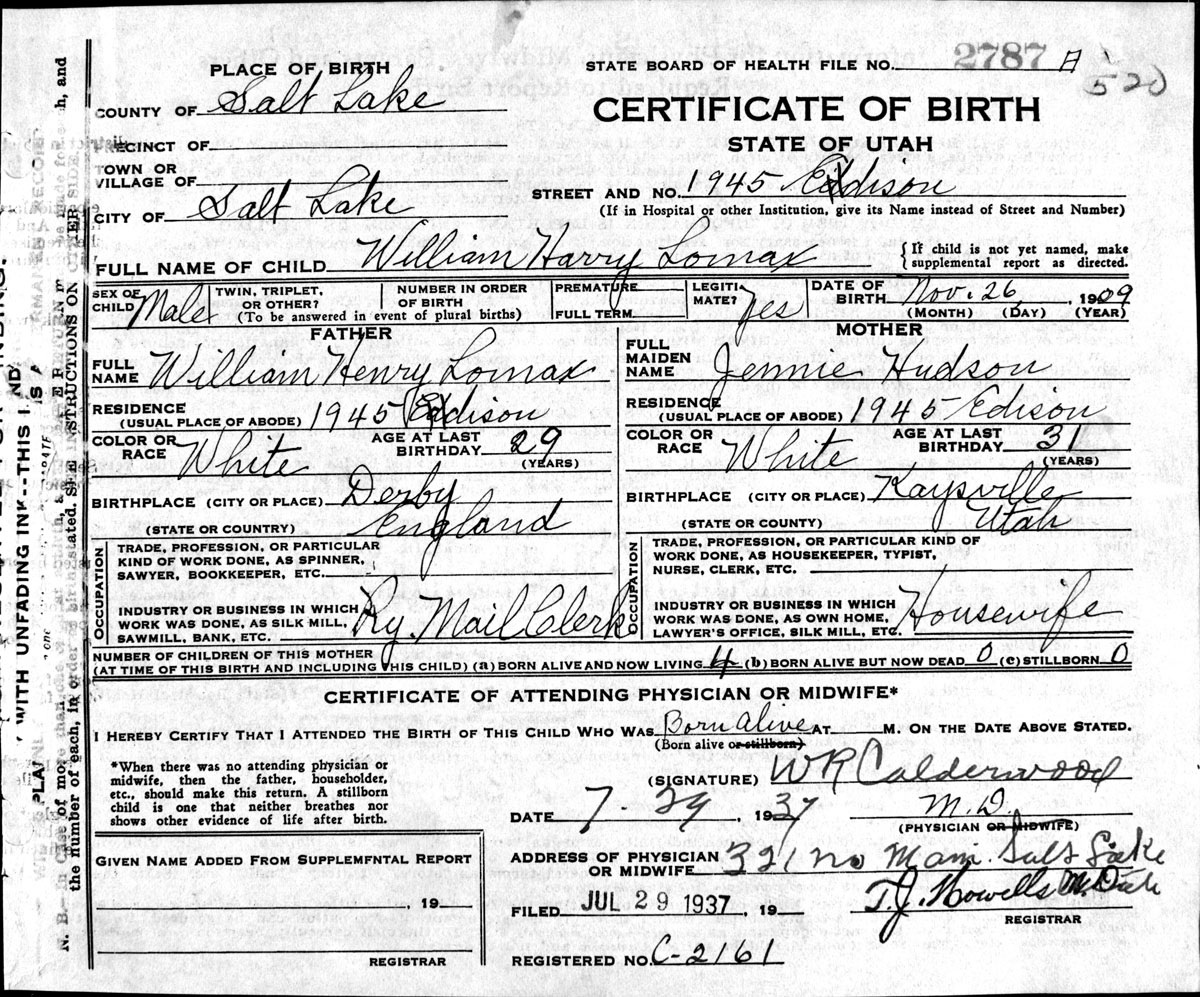 PLACE OF BIRTH
STATE BOARD OF HEALTH FILE NO. 2787 A
520
COUNTY OF Salt Lake
CERTIFICATE OF BIRTH
PRECINCT OF
STATE OF UTAH
TOWN OR
VILLAGE OF
STREET AND NO. 1945 Edison
CITY OF Salt Lake
(If in Hospital or other Institution, give its Name instead of Street and Number)
FULL NAME OF CHILD William Harry Lomax
{If child is not yet named, make
supplemental report as directed.
SEX OF
CHILD Male
TWIN, TRIPLET,
OR OTHER?
(To be answered in event of plural births)
NUMBER IN ORDER
OF BIRTH
PREMATURE
FULL TERM
LEGITI-
MATE? Yes
DATE OF
BIRTH Nov. 26, 1909
(MONTH) (DAY) (YEAR)
FATHER
FULL
NAME William Henry Lomax
RESIDENCE
(USUAL PLACE OF ABODE) 1945 Edison
COLOR OR
RACE White
AGE AT LAST
BIRTHDAY 29
(YEARS)
BIRTHPLACE (CITY OR PLACE) Derby
(STATE OR COUNTRY) England
OCCUPATION
TRADE, PROFESSION, OR PARTICULAR
KIND OF WORK DONE, AS SPINNER,
SAWYER, BOOKKEEPER, ETC.
INDUSTRY OR BUSINESS IN WHICH
WORK WAS DONE, AS SILK MILL,
SAWMILL, BANK, ETC. Ry. Mail Clerk
MOTHER
FULL
MAIDEN
NAME Jennie Hudson
RESIDENCE
(USUAL PLACE OF ABODE) 1945 Edison
COLOR OR
RACE White
AGE AT LAST
BIRTHDAY 31
(YEARS)
BIRTHPLACE (CITY OR PLACE) Kaysville
(STATE OR COUNTY) Utah
OCCUPATION
TRADE, PROFESSION, OR PARTICULAR KIND OF
WORK DONE, AS HOUSEKEEPER, TYPIST,
NURSE, CLERK, ETC.
INDUSTRY OR BUSINESS IN WHICH
WORK WAS DONE, AS OWN HOME,
LAWYER'S OFFICE, SILK MILL, ETC. Housewife
NUMBER OF CHILDREN OF THIS MOTHER
(AT TIME OF THIS BIRTH AND INCLUDING THIS CHILD) (a) BORN ALIVE AND NOW LIVING 4 (b) BORN ALIVE BUT NOW DEAD 0 (c) STILLBORN 0
CERTIFICATE OF ATTENDING PHYSICIAN OR MIDWIFE*
I HEREBY CERTIFY THAT I ATTENDED THE BIRTH OF THIS CHILD WHO WAS Born Alive AT M. ON THE DATE ABOVE STATED.
(Born alive or stillborn)
*When there was no attending physician or
midwife, then the father, householder,
etc., should make this return. A stillborn
child is one that neither breathes nor
shows other evidence of life after birth.
(SIGNATURE) W R Calderwood
DATE 7-29, 1937 M.D.
(PHYSICIAN OR MIDWIFE)
GIVEN NAME ADDED FROM SUPPLEMFNTAL REPORT
, 19
REGISTRAR
ADDRESS OF PHYSICIAN
OR MIDWIFE 321 No Main. Salt Lake
FILED JUL 29 1937, 19 T.J. Howells M.D.
REGISTRAR
REGISTERED NO. C-2161
WITH UNFADING INK--THIS I
the number of each, in order
STRUCTIONS ON